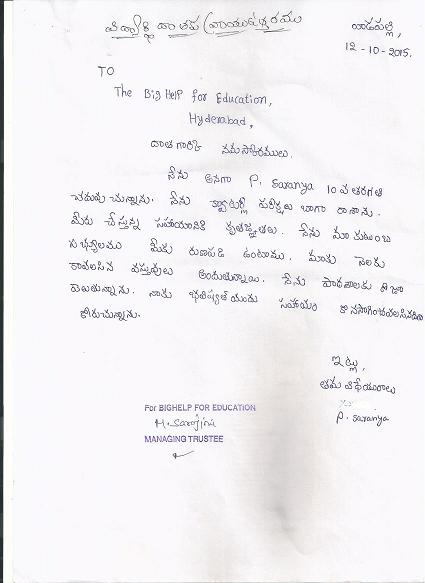 విద్యార్థి దాతకు వ్రాయు ఉత్తరము
పాడపల్లి,
12-10-2015.
TO
The Big Help for Education,
Hyderabad,
దాత గారికి నమస్కారములు.
నేను అనగా P. Saranya 10వ తరగతి
చదువు చున్నాను. నేను క్వార్టర్లీ పరీక్షలు బాగా రాశాను.
మీరు చేస్తున్న సహాయానికి కృతజ్ఞతలు. నేను మా కుటుంబ
సభ్యులము మీకు రుణపడి ఉంటాము. మాకు నెలకు
కావలసిన వస్తువులు అందుతున్నాయి. నేను పాఠశాలకు రోజూ
వెలుతున్నాను. నాకు భవిష్యత్ యందు సహాయం కొనసాగించవలసినదిగా
కోరుచున్నాను.
ఇట్లు,
తమ విధేయురాలు
P. Saranya
For BIGHELP FOR EDUCATION
M. Sarojini
MANAGING TRUSTEE